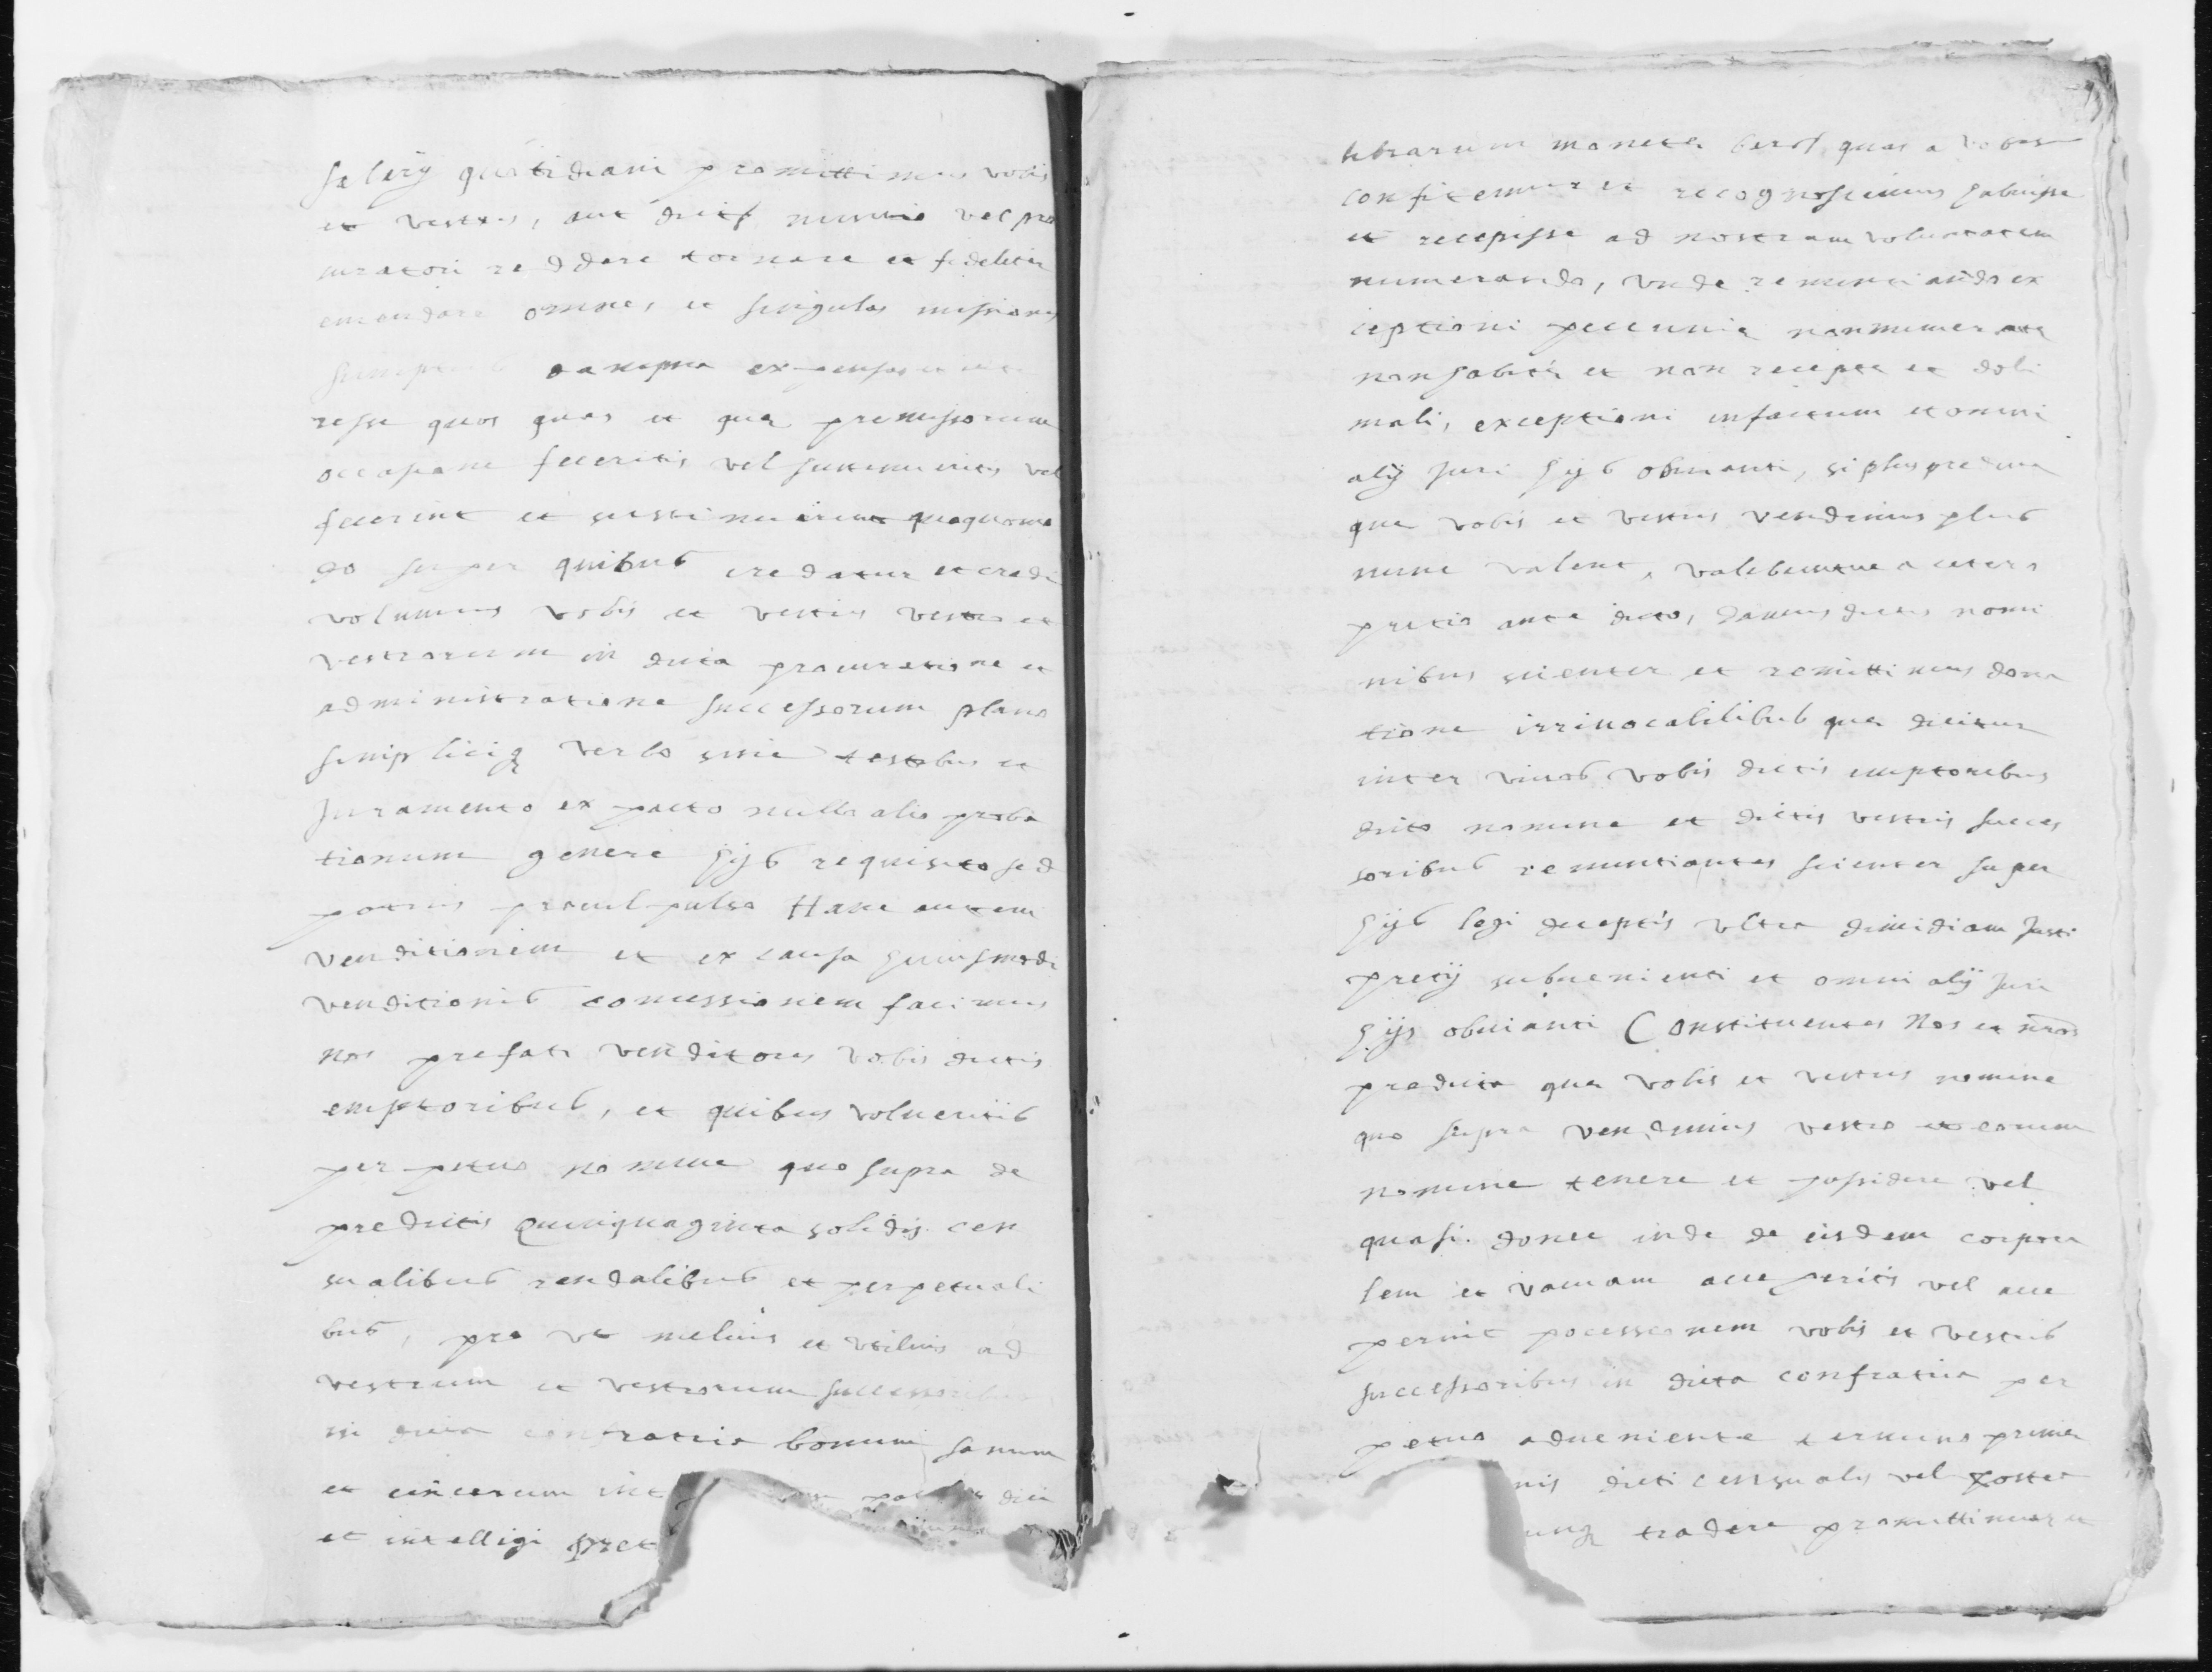 salerij quotidiani promittimus vobis
et vestris, aut dicto nuntio vel pro
curatori reddere tornare et fideliter
emendare omnes et singulas missiones
sumptus damna expensas et inte
resse quos quas et que premissorum
occasione feceritis vel sustinueritis vel
fecerint et sustinuerint quoquomo
do super quibus credatur et credi
volumus vobis et vestris vestro et
vestrorum in dicta procuratione et
administratione successorum plano
simpliciq verbo sine testibus et
Juramento ex pacto nullo alio proba
tionum genere hijs requisito sed
potius procul pulso Hanc autem
venditionem et ex causa huiusmodi
venditionis concessionem facimus
nos prefati venditores vobis dictis
emptoribus, et quibus volueritis
perpetuo nomine quo supra de
predictis Quinquaginta solidis cen
sualibus rendalibus et perpetuali
bus, pro ut melius et utilius ad
vestrum et vestrorum successoribus
in dicta confratria bonum sanum
et cincerum int dici
et intelligi pret
librarum moneta barsª quas a vobis
confitemur et recognoscimus habuisse
et recepisse ad nostram voluntatem
numerando, unde renuntiando ex
ceptioni peccunia nonnumerata
non habitis et non recepta et doli
mali, exceptioni infactum et omni
alij Juri hijs obuianti, si plus predicta
que vobis et vestris vendimus plus
nunc valent, valebuntue a cetero
pretio ante dicto, damus dictis nomi
nibus scienter et remittimus dona
tione irriuocalilibus que dicitur
inter viuos vobis dictis emptoribus
dicto nomine et dictis vestris succes
soribus renuntiantes scienter super
hijs legi deceptis ultra dimidiam Justi
pretij subuenienti et omni alij Juri
hijs obuianti Constituentes Nos et nros
predicta que vobis et vestris nomine
quo supra vendimus vestro et eorum
nomine tenere et possidere vel
quasi. donec inde de eisdem corpora
lem et vacuam acceperitis vel acce
perint pocessionem vobis et vestris
successoribus in dicta confratria per
petuo adueniente termino prime
nis dicti censualis vel postea
unq tradere promittimus et